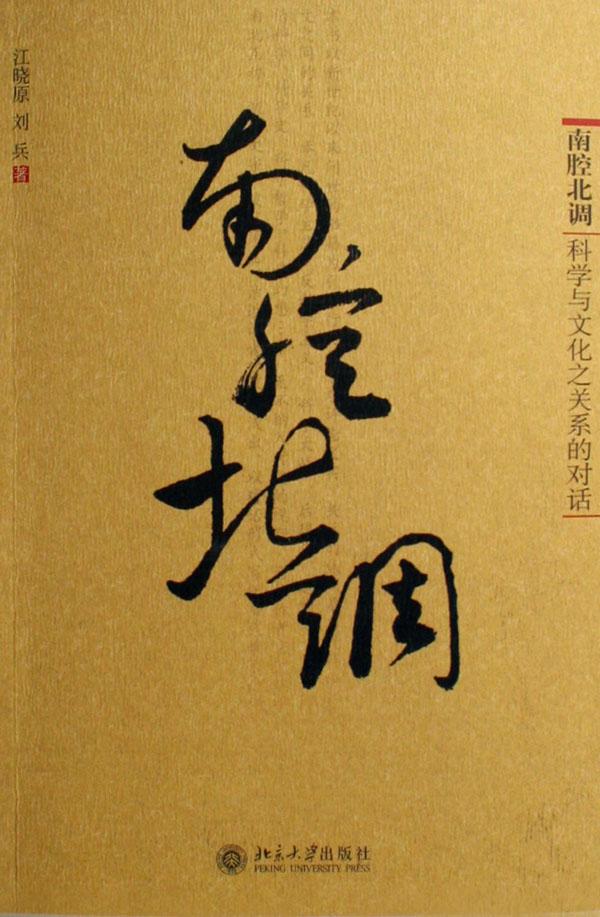 江晓原 刘兵 著
南腔北调
南腔北调
科学与文化之关系的对话
北京大学出版社
PEKING UNIVERSITY PRESS